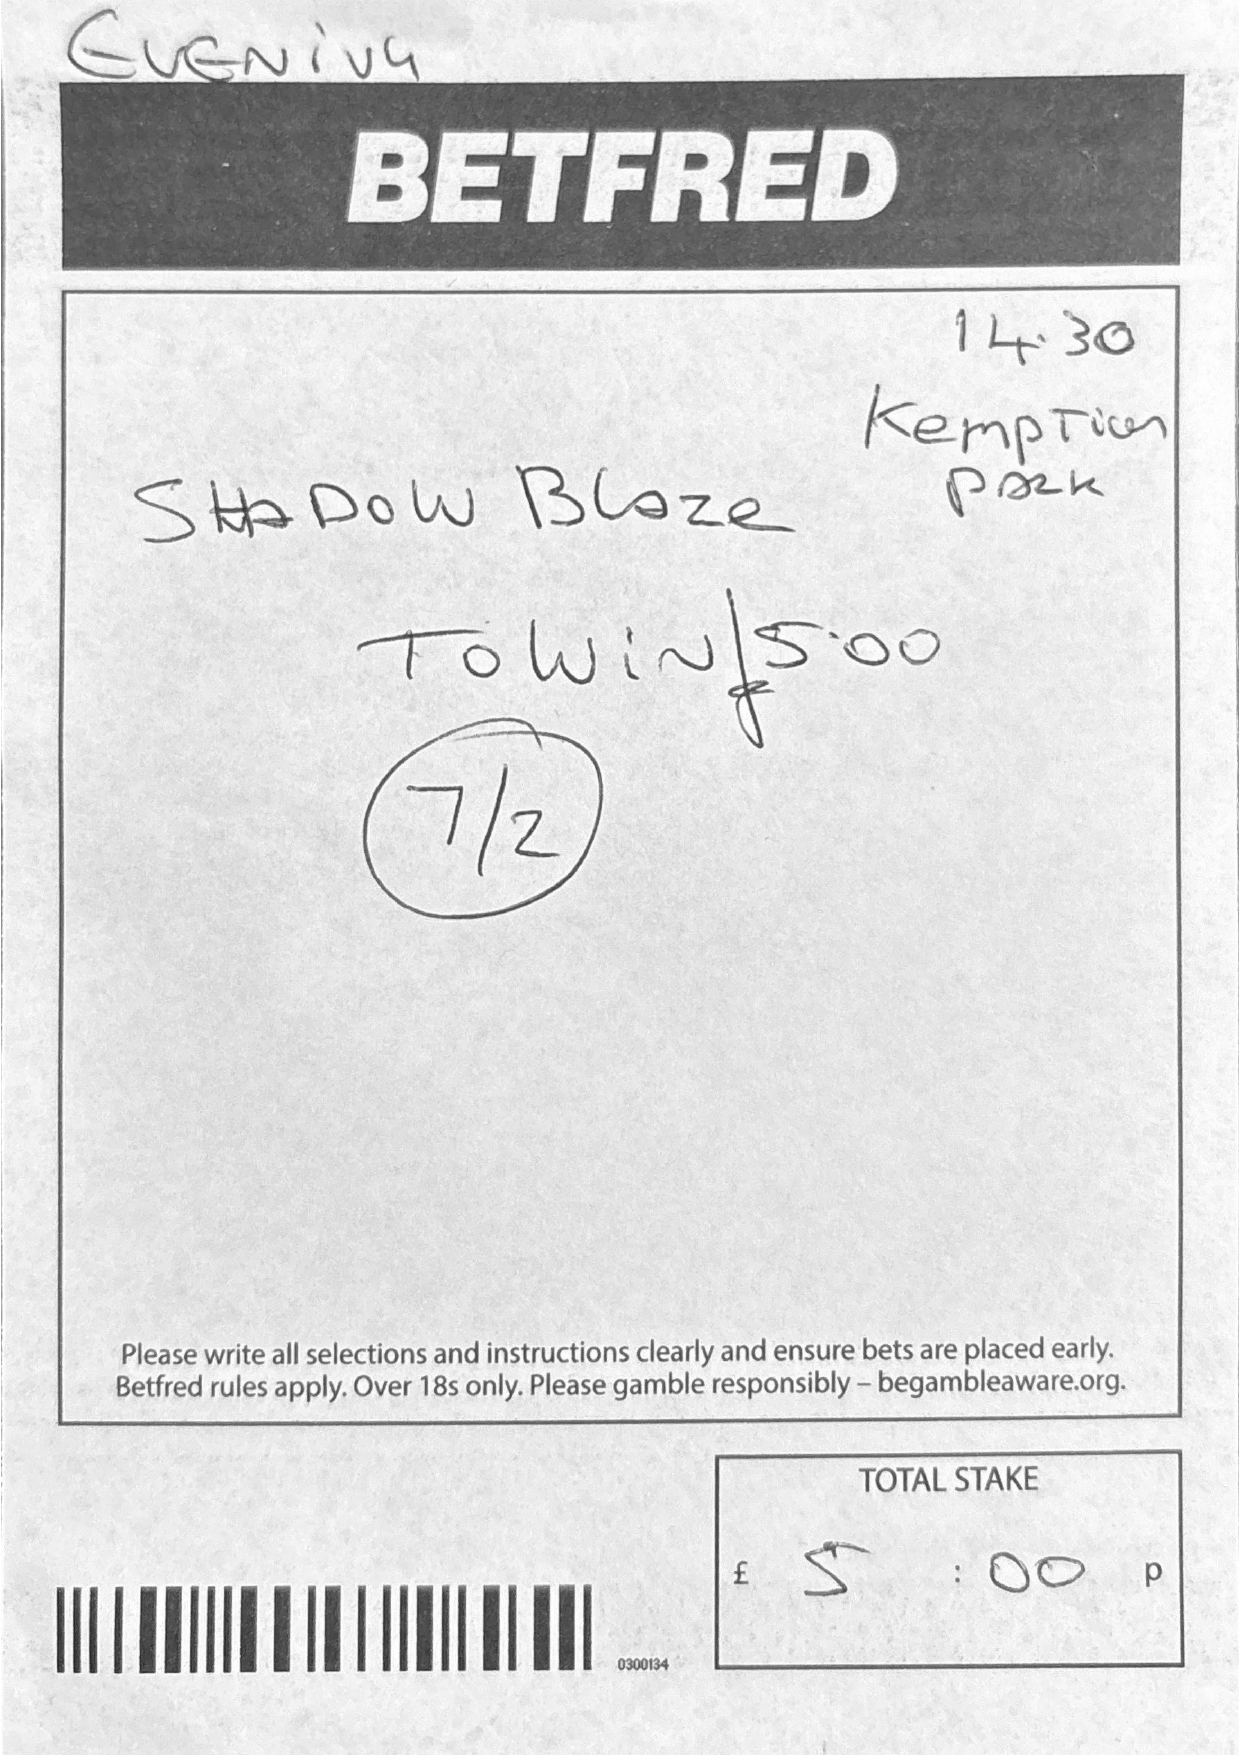 EVENING
BETFRED
14.30
Kemption
Park
SHADOW Blaze
To WIN £5.00
7/2
Please write all selections and instructions clearly and ensure bets are placed early.
Betfred rules apply. Over 18s only. Please gamble responsibly – begambleaware.org.
TOTAL STAKE
£ 5 : 00 p
0300134